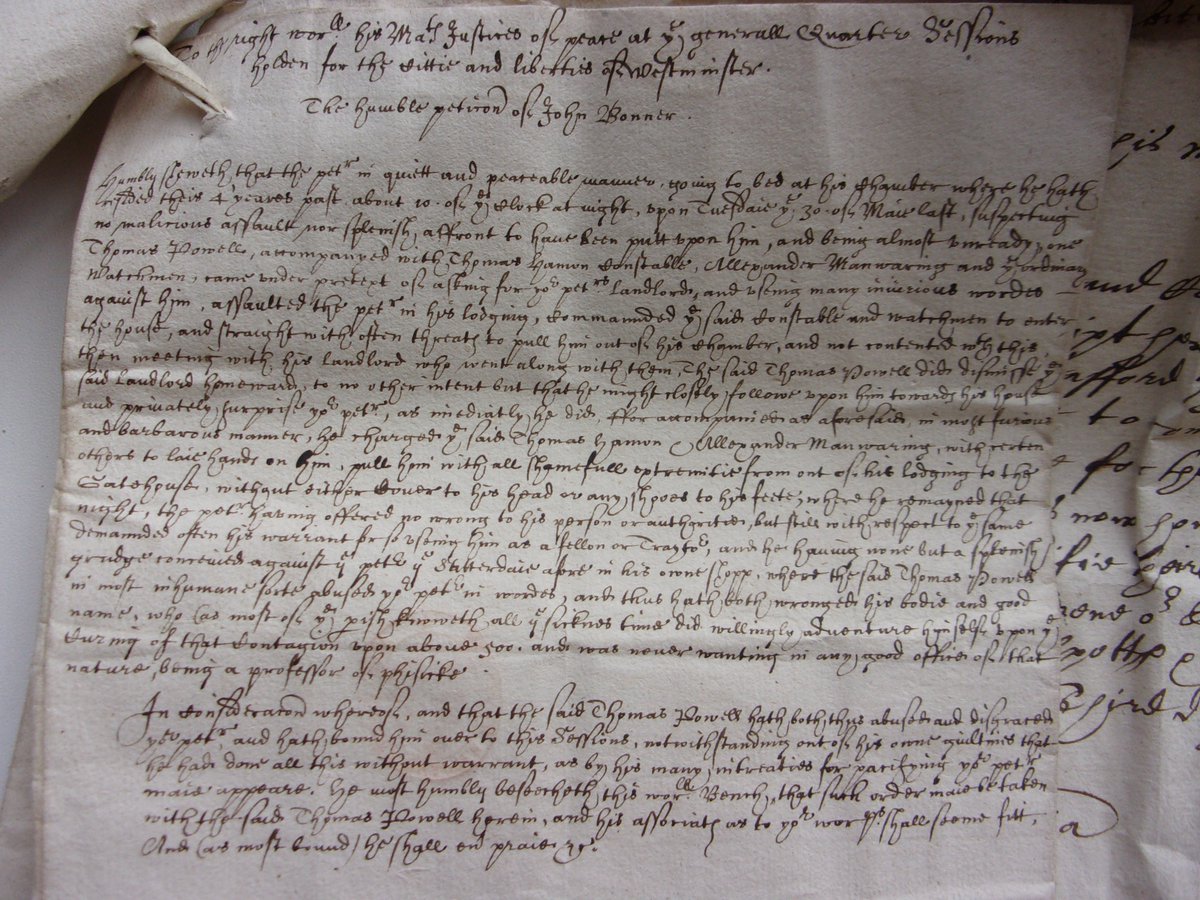 To the right worll his Mats Justices of peace at ye generall Quarter Sessions
holden for the Cittie and liberties of Westminster.
The humble peticon of John Bonner.
Humbly sheweth, that the petr in quiett and peaceable manner, going to bed at his Chamber where he hath
resided theis 4 yeares past, about 10. of ye Clock at night, upon Tuesdaie ye 30. of Maie last, suspecting
no malicious assault nor splenish affront to have been putt upon him, and being almost unready, one
Thomas Powell, accompanyed with Thomas Hamon Constable, Allexander Manwaring and ye ordinary
watchmen, came under pretext of asking for yor petrs Landlord, and useing many iniurious wordes
against him, assaulted the petr in his lodging, Commaunded ye said Constable and watchmen to enter
the house, and straught with often threats to pull him out of his Chamber, and not contented wth this
then meeting with his Landlord who went along with them, The said Thomas Powell did dismisse ye
said Landlord homeward, to no other intent but that he might closely followe upon him towards his house
and privately surprise yor petr, as imediatly he did, ffor accompanied as aforesaid, in most furious
and barbarous manner, he charged ye said Thomas Hamon, Allexander Manwaring, with certen
others to laie hands on him, pull him with all shamefull extremitie from out of his lodging to the
Gatehouse, without either Cover to his head or any shooes to his feete, where he remayned that
night, the petr having offered no wrong to his person or authoritie, but still with respect to ye same
demaunded often his warrant for so useing him as a fellon or Traytor, and he having none but a splenish
grudge conceived against ye petr ye Satterdaie afore in his owne shopp, where the said Thomas Powell
in most inhumane sorte abused yor petr in wordes, and thus hath both wronged his bodie and good
name, who (as most of ye pish knoweth) all ye sicknes time did willingly adventure himself upon ye
Curing of that Contagion upon above 500. and was never wanting in any good office of that
nature, being a professor of phisicke.
In Consideracon whereof, and that the said Thomas Powell hath both thus abused and disgraced
yor petr, and hath bound him over to this Sessions, notwithstanding out of his owne guiltines that
he had done all this without warrant, as by his many intreaties for pacifying yor petr
maie appeare. He most humbly beseecheth this worll Bench, that such order maie be taken
with the said Thomas Powell herein, and his associats as to yor worps shall seeme fitt.
And (as most bound) he shall ev praie &c.